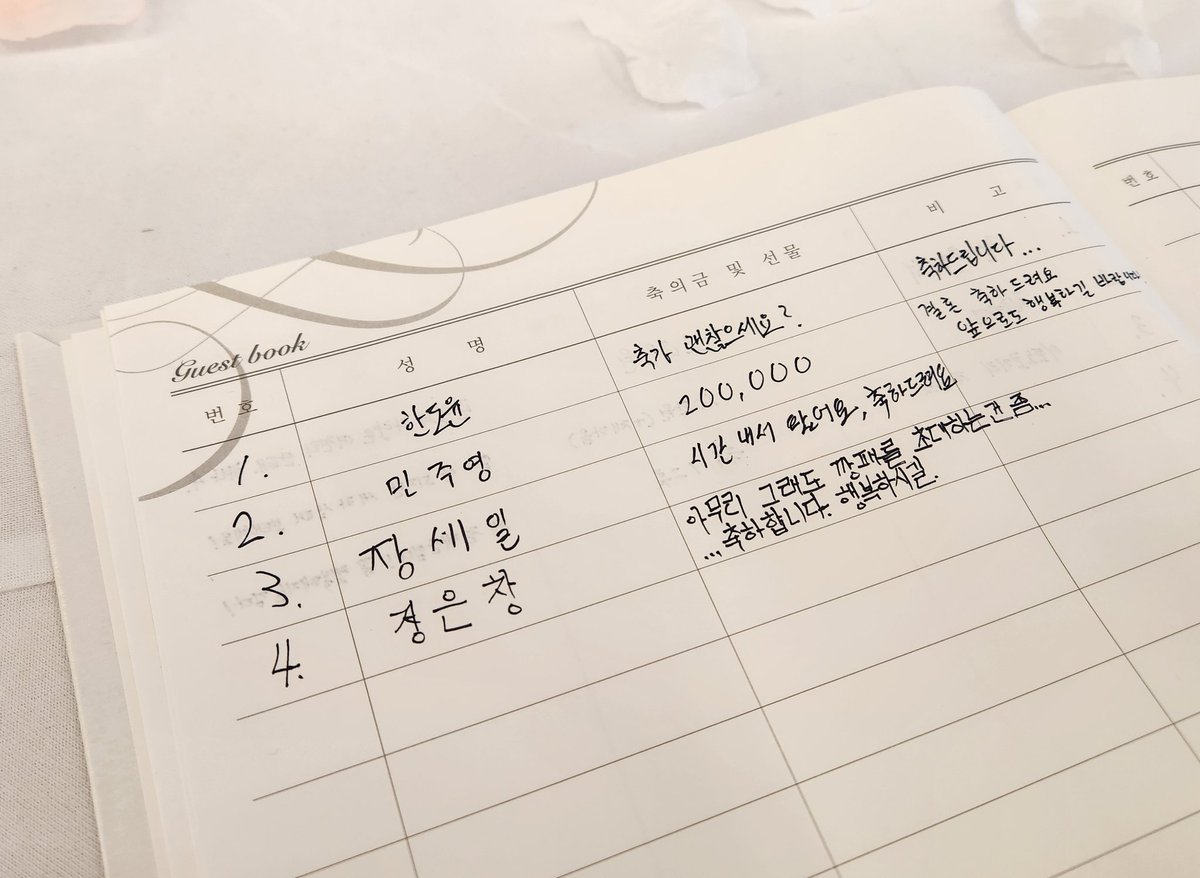 Guest book
번 호 성 명 축의금 및 선물 비 고
1. 한도윤 축가 괜찮으세요? 축하드립니다...
2. 민주영 200,000 결혼 축하 드려요
앞으로도 행복하길
3. 장세일 시간 내서 왔어요, 축하드려요
4. 정은창 아무리 그래도 깡패를 초대하는건 좀...
...축하합니다. 행복하시길.
번호